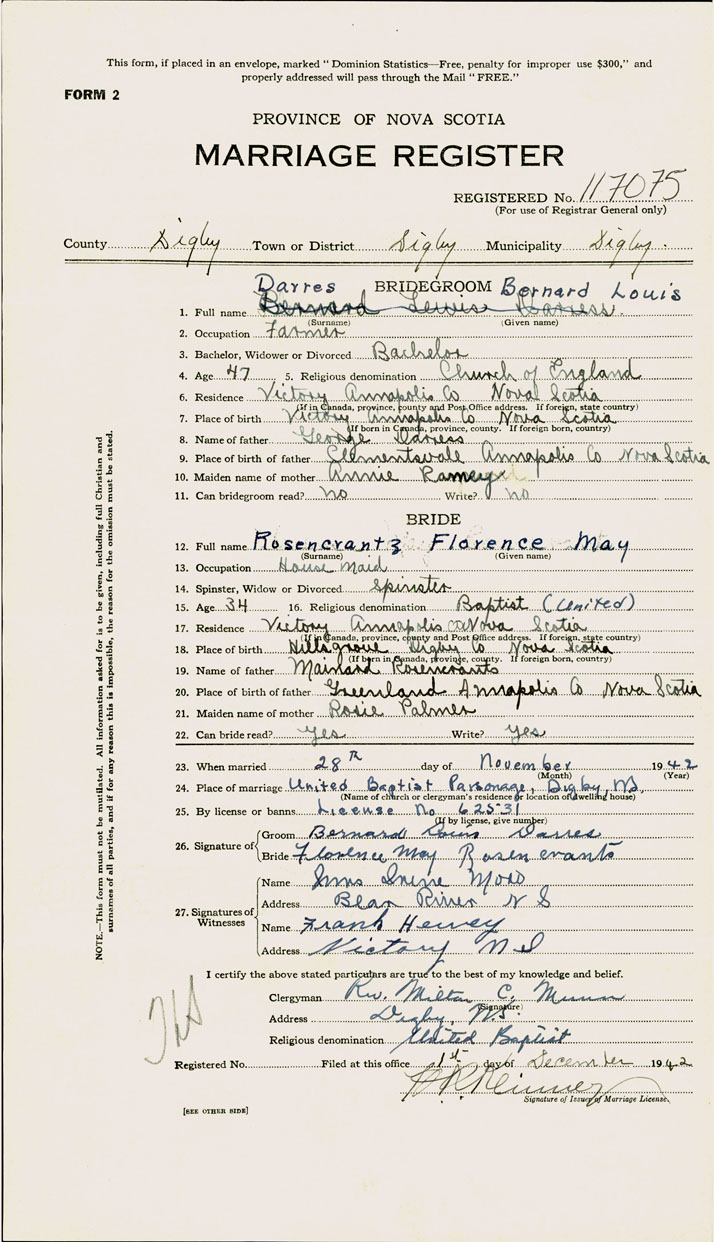 This form, if placed in an envelope, marked "Dominion Statistics—Free, penalty for improper use $300," and
properly addressed will pass through the Mail "FREE."
FORM 2
PROVINCE OF NOVA SCOTIA
MARRIAGE REGISTER
REGISTERED No. 117075
(For use of Registrar General only)
County Digby Town or District Digby Municipality Digby.
Darres BRIDEGROOM Bernard Louis
1. Full name Bernard Lewis Darress
(Surname) (Given name)
2. Occupation Farmer
3. Bachelor, Widower or Divorced Bachelor
4. Age 47 5. Religious denomination Church of England
6. Residence Victory Annapolis Co Nova Scotia
(If in Canada, province, county and Post Office address. If foreign, state country)
7. Place of birth Victory Annapolis Co Nova Scotia
(If born in Canada, province, county. If foreign born, country)
8. Name of father George Darress
9. Place of birth of father Clementsvale Annapolis Co Nova Scotia
10. Maiden name of mother Annie Ramey
11. Can bridegroom read? no Write? no
BRIDE
12. Full name Rosencrantz Florence May
(Surname) (Given name)
13. Occupation House maid
14. Spinster, Widow or Divorced Spinster
15. Age 34 16. Religious denomination Baptist (United)
17. Residence Victory Annapolis Co Nova Scotia
(If in Canada, province, county and Post Office address. If foreign, state country)
18. Place of birth Hillsgrove Digby Co Nova Scotia
(If born in Canada, province, county. If foreign born, country)
19. Name of father Mainard Rosencrants
20. Place of birth of father Greenland Annapolis Co Nova Scotia
21. Maiden name of mother Rosie Palmer
22. Can bride read? Yes Write? Yes
23. When married 28th day of November 1942
(Month) (Year)
24. Place of marriage United Baptist Parsonage, Digby, N.S.
(Name of church or clergyman's residence or location of dwelling house)
25. By license or banns License No 62531
(If by license, give number)
26. Signature of Groom Bernard Louis Darres
Bride Florence May Rosencrants
27. Signatures of Witnesses
Name Mrs Irene Moro
Address Bear River N S
Name Frank Hervey
Address Victory N S
I certify the above stated particulars are true to the best of my knowledge and belief.
Clergyman Rev. Milton C. Munro
(Signature)
Address Digby, N.S.
Religious denomination United Baptist
Registered No. Filed at this office 1st day of December 1942
Signature of Issuer of Marriage License.
[SEE OTHER SIDE]
NOTE.—This form must not be mutilated. All information asked for is to be given, including full Christian and
surnames of all parties, and if for any reason this is impossible, the reason for the omission must be stated.